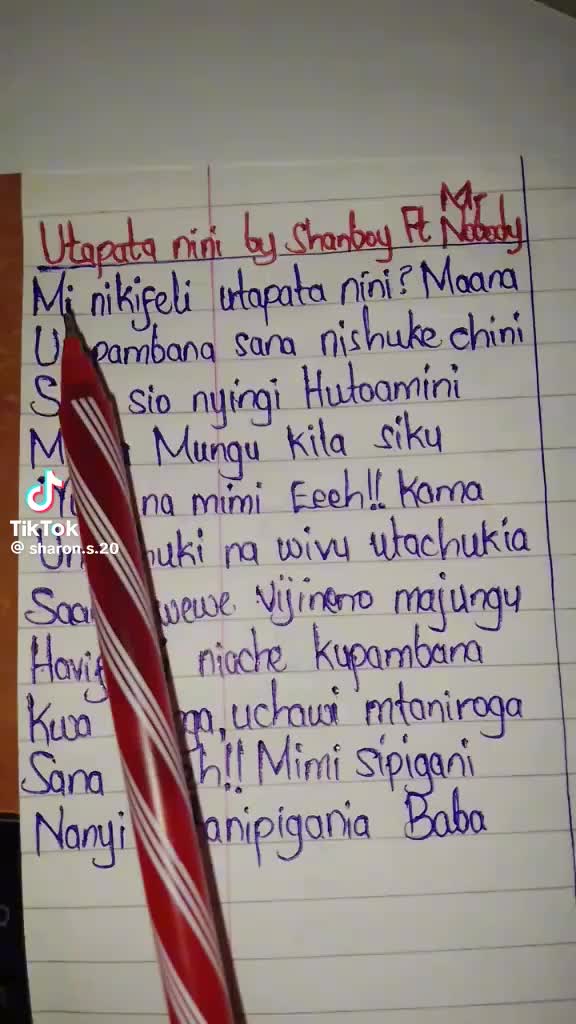 Utapata nini by Shanboy Ft Mr Nobody
Mi nikifeli utapata nini? Maana
pambana sana nishuke chini
sio nyingi Hutoamini
Mungu kila siku
na mimi Eeeh!! Kama
na wivu utachukia
wewe Vijineno majungu
niache kupambana
Kwa uchawi mtaniroga
Sana Mimi sipigani
anipigania Baba
TikTok
@ sharon.s.20